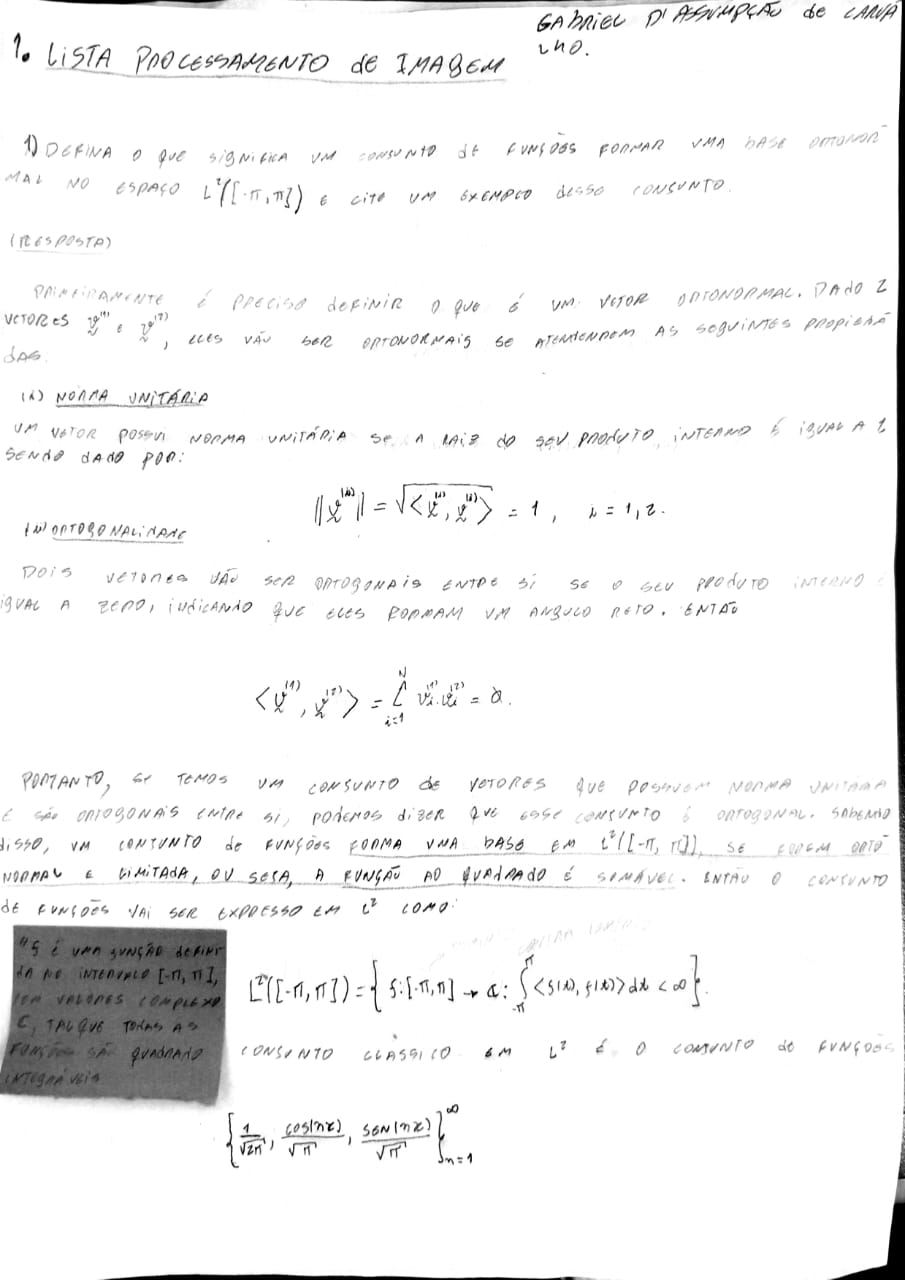 GABRIEL D'ASSUMPÇÃO de CARVA
LHO.
1. LISTA PROCESSAMENTO de IMAGEM
1) DEFINA O QUE SIGNIFICA UM CONJUNTO DE FUNÇÕES FORMAR UMA BASE ORTONOR
MAL NO ESPAÇO L²([-π, π]) E CITE UM EXEMPLO DESSE CONJUNTO.
(RESPOSTA)
PRIMEIRAMENTE É PRECISO DEFINIR O QUE É UM VETOR ORTONORMAL. DADO 2
VETORES v⁽¹⁾ E v⁽²⁾, ELES VÃO SER ORTONORMAIS SE ATENDEREM AS SEGUINTES PROPIEDA
DAS.
(i) NORMA UNITÁRIA
UM VETOR POSSUI NORMA UNITÁRIA SE A RAIZ DO SEU PRODUTO INTERNO É IGUAL A 1
SENDO DADO POR:
||v⁽ⁱ⁾|| = √<v⁽ⁱ⁾, v⁽ⁱ⁾> = 1, i = 1,2.
(ii) ORTOGONALIDADE
DOIS VETORES VÃO SER ORTOGONAIS ENTRE SI SE O SEU PRODUTO INTERNO É
IGUAL A ZERO, INDICANDO QUE ELES FORMAM UM ANGULO RETO. ENTÃO
<v⁽¹⁾, v⁽²⁾> = Σ_{i=1}^{N} vᵢ⁽¹⁾.vᵢ⁽²⁾ = 0.
PORTANTO, SE TEMOS UM CONJUNTO DE VETORES QUE POSSUEM NORMA UNITÁRIA
E SÃO ORTOGONAIS ENTRE SI, PODEMOS DIZER QUE ESSE CONJUNTO É ORTOGONAL. SABENDO
DISSO, UM CONJUNTO de FUNÇÕES FORMA UMA BASE EM L²([-π, π]), SE FOREM ORTO
NORMAL E LIMITADA, OU SEJA, A FUNÇÃO AO QUADRADO É SOMÁVEL. ENTÃO O CONJUNTO
DE FUNÇÕES VAI SER EXPRESSO EM L² COMO:
"f É UMA FUNÇÃO DEFINI
DA NO INTERVALO [-π, π],
COM VALORES COMPLEXO
C, TAL QUE TODAS AS
FUNÇÕES SÃO QUADRADO
INTEGRÁVEIS
L²([-π, π]) = { f: [-π, π] → ℂ : ∫_{-π}^{π} <f(t), f(t)> dt < ∞ }.
CONJUNTO CLÁSSICO EM L² É O CONJUNTO DE FUNÇÕES
{ 1/√2π, cos(nx)/√π, SEN(nx)/√π }_{n=1}^{∞}